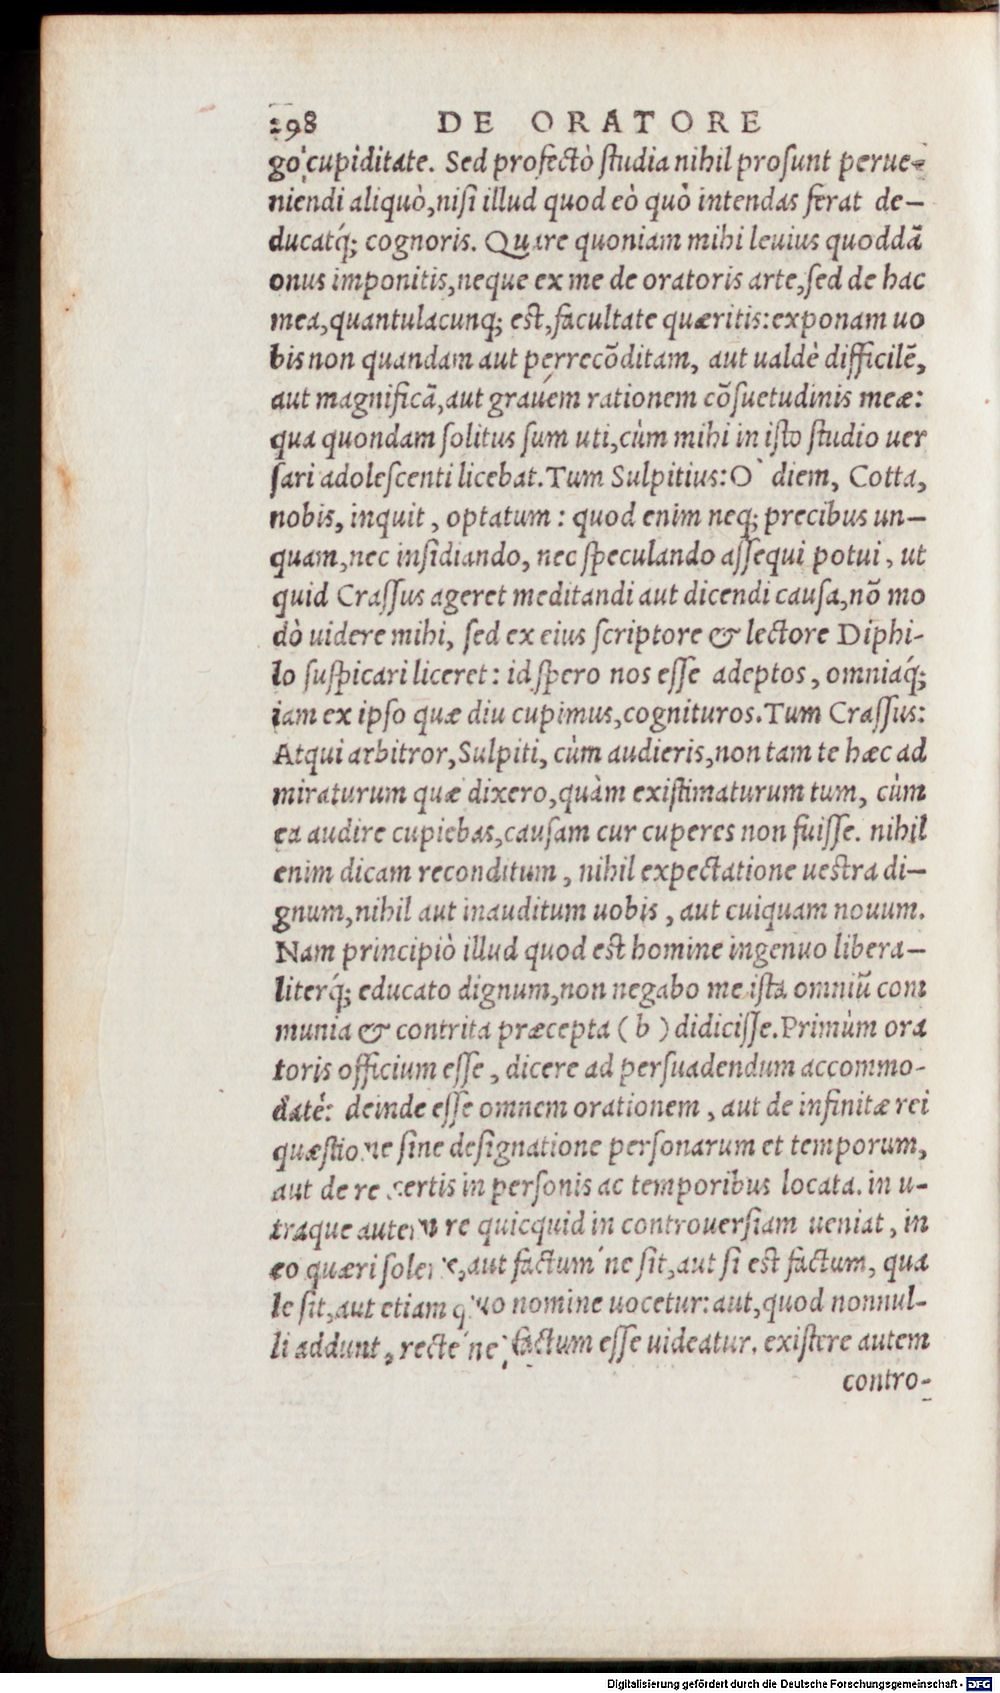 298 DE ORATORE
go cupiditate. Sed profectò studia nihil prosunt perue-
niendi aliquò, nisi illud quod eò quò intendas ferat de-
ducatq́; cognoris. Quare quoniam mihi leuius quoddã
onus imponitis, neque ex me de oratoris arte, sed de hac
mea, quantulacunq; est, facultate quæritis: exponam uo
bis non quandam aut perrecõditam, aut ualdè difficilẽ,
aut magnificã, aut grauem rationem cõsuetudinis meæ:
qua quondam solitus sum uti, cùm mihi in isto studio uer
sari adolescenti licebat. Tum Sulpitius: O` diem, Cotta,
nobis, inquit, optatum: quod enim neq; precibus un-
quam, nec insidiando, nec speculando assequi potui, ut
quid Crassus ageret meditandi aut dicendi causa, nõ mo
dò uidere mihi, sed ex eius scriptore & lectore Diphi-
lo suspicari liceret: id spero nos esse adeptos, omniaq́;
iam ex ipso quæ diu cupimus, cognituros. Tum Crassus:
Atqui arbitror, Sulpiti, cùm audieris, non tam te hæc ad
miraturum quæ dixero, quàm existimaturum tum, cùm
ea audire cupiebas, causam cur cuperes non fuisse. nihil
enim dicam reconditum, nihil expectatione uestra di-
gnum, nihil aut inauditum uobis, aut cuiquam nouum.
Nam principiò illud quod est homine ingenuo libera-
literq́; educato dignum, non negabo me ista omniũ com
munia & contrita præcepta (b) didicisse. Primùm ora
toris officium esse, dicere ad persuadendum accommo-
datè: deinde esse omnem orationem, aut de infinitæ rei
quæstione sine designatione personarum et temporum,
aut de re certis in personis ac temporibus locata. in u-
traque autem re quicquid in controuersiam ueniat, in
eo quæri solere, aut factum ́ne sit, aut si est factum, qua
le sit, aut etiam quo nomine uocetur: aut, quod nonnul-
li addunt, recte ́ne factum esse uideatur. existere autem
contro-
Digitalisierung gefördert durch die Deutsche Forschungsgemeinschaft - DFG